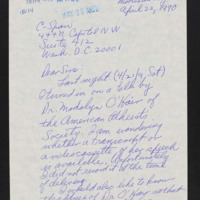 April 22, 1990
C-Span
444 N Capitol NW
Suite 412
Wash. D.C. 20001
Dear Sirs:
Last night (4/21/90, Sat)
I tuned in on a talk by
Dr. Madalyn O'Hair of
the American Atheists
Society. I am wondering
whether a transcript or
a videocassette of her speech
is available. Unfortunately
I did not record it at the time
of delivery.
I would also like to know
the address of Dr. O'Hair so that